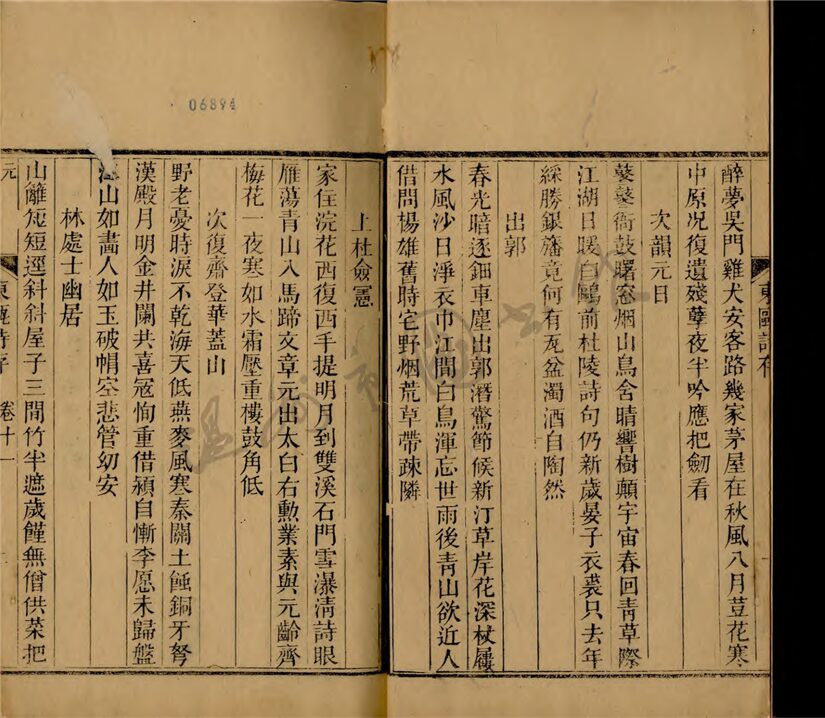 06894
醉夢吳門雞犬安客路幾家茅屋在秋風八月荳花寒
中原况復遺殘孽夜半吟應把劒看
次韻元日
鼕鼕衙鼓曙窓烟山鳥舍晴響樹顛宇宙春回靑草際
江湖日暖白鷗前杜陵詩句仍新歲晏子衣裘只去年
綵勝銀旛竟何有瓦盆濁酒自陶然
出郭
春光暗逐鈿車塵出郭潛驚節候新汀草岸花深杖屨
水風沙日淨衣巾江間白鳥渾忘世雨後靑山欲近人
借問楊雄舊時宅野烟荒草帶疎隣
上杜僉憲
家住浣花西復西手提明月到雙溪石門雪瀑淸詩眼
雁蕩靑山入馬蹄文章元出太白右勲業素與元齡齊
梅花一夜寒如水霜壓重樓鼓角低
次復齋登華蓋山
野老憂時淚不乾海天低燕麥風寒秦關土蝕銅牙弩
漢殿月明金井闌共喜冦恂重借潁自慚李愿未歸盤
山如畵人如玉破帽空悲管幼安
林處士幽居
山籬短短逕斜斜屋子三間竹半遮歲饉無僧供菜把
東甌詩存
卷十一
元
溫州市圖書館